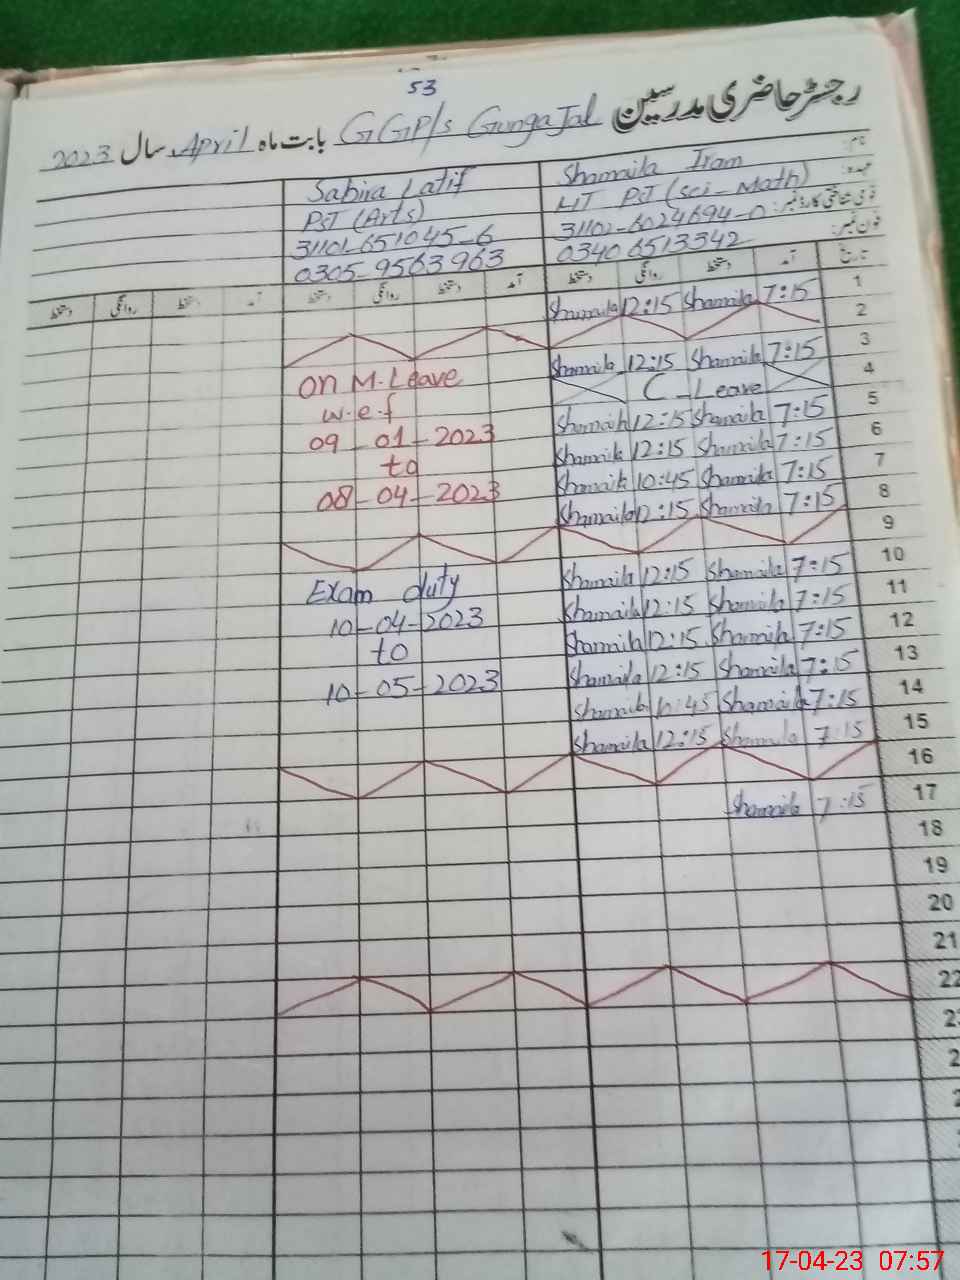 53
رجسٹر حاضری مدرسین GGP/s Gunga Jal بابت ماہ April سال 2023
نام:
Sabira Latif Shamaila Iram
عہدہ:
PST (Arts) PST (Sci-Math)
قومی شناختی کارڈ نمبر:
31101-651045-6 31102-6024694-0
فون نمبر:
0305-9563963 03406513342
دستخط روانگی دستخط آمد دستخط روانگی دستخط آمد دستخط روانگی دستخط آمد تاریخ
Shamaila 12:15 Shamaila 7:15 1
2
on M.Leave Shamaila 12:15 Shamaila 7:15 3
w.e.f C-Leave 4
09-01-2023 Shamaila 12:15 Shamaila 7:15 5
to Shamaila 12:15 Shamaila 7:15 6
08-04-2023 Shamaila 10:45 Shamaila 7:15 7
Shamaila 12:15 Shamaila 7:15 8
9
Exam duty Shamaila 12:15 Shamaila 7:15 10
10-04-2023 Shamaila 12:15 Shamaila 7:15 11
to Shamaila 12:15 Shamaila 7:15 12
10-05-2023 Shamaila 12:15 Shamaila 7:15 13
Shamaila Shamaila 7:15 14
Shamaila 12:15 Shamaila 7:15 15
16
Shamaila 7:15 17
18
19
20
21
22
17-04-23 07:57